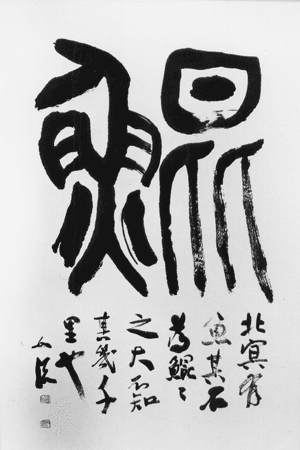 鯤
北冥有
魚其名
為鯤〻
之大不知
其幾千
里也